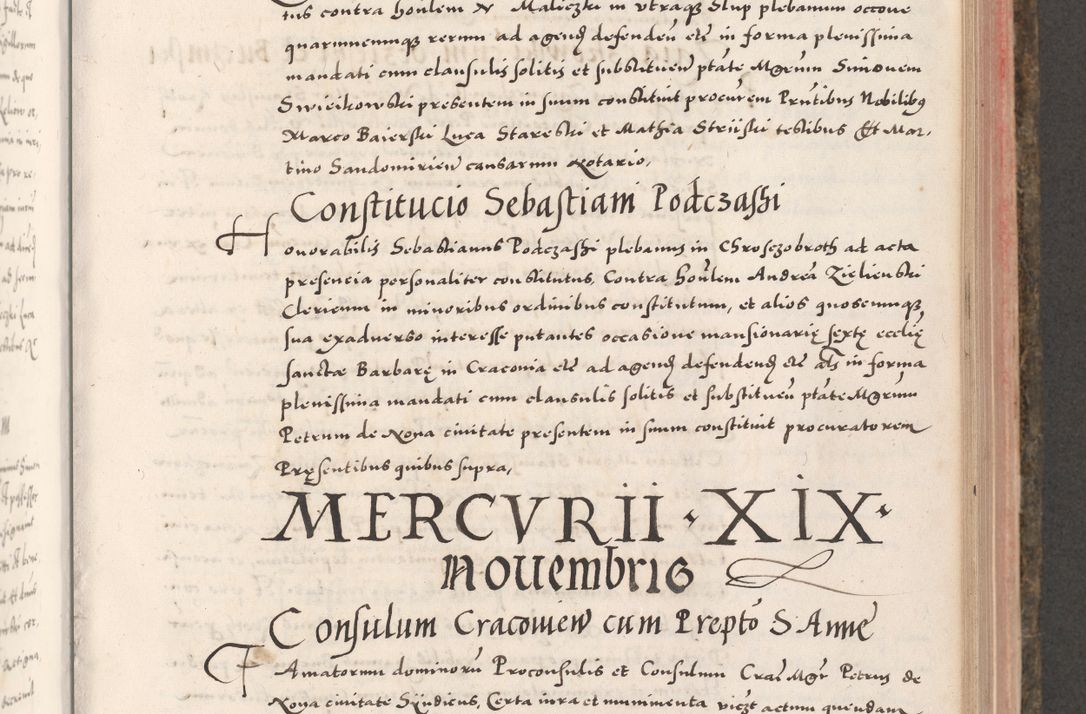 tus contra honlem N Maliczki in vtraqȝ Slup plebanum occone
quarumcumqȝ rerum ad agend defendeñ etc in forma plenissima
mandati cum clausulis solitis et substitueñ ptate Mgrum Simonem
Swieikowski presentem in suum constituit procurem Pñtibus Nobilibȝ
Marco Baierski Luca Stareski et Mathia Striiski testibus Et Mar,
tino Sandomirieñ causarum Notario,
Constitucio Sebastiani Podczaski
Honorabilis Sebastianus Podczaski plebanus in Chrosczobroth ad acta
presencia personaliter constitutus, Contra honlem Andreã Zielienski
Clericum in minoribus ordinibus constitutum, et alios quoscumqȝ
sua exaduerso interesse putantes occasione mansionarię sextę ecclię
sanctæ Barbarę in Cracouia etc ad agend defendend etc als in forma
plenissima mandati cum clausulis solitis et substitueñ ptate Mgrum
Petrum de Noua ciuitate presentem in suum constituit procuratorem
Pręsentibus quibus supra,
MERCVRII · XIX ·
Nouembris
Consulum Cracouieñ cum Prepto S Anne
Famatorum dominorũ Proconsulis et Consulum Crac Mgr Petrus de
Noua ciuitate Syndicus, Certa iura et munimenta viczt actum quendam